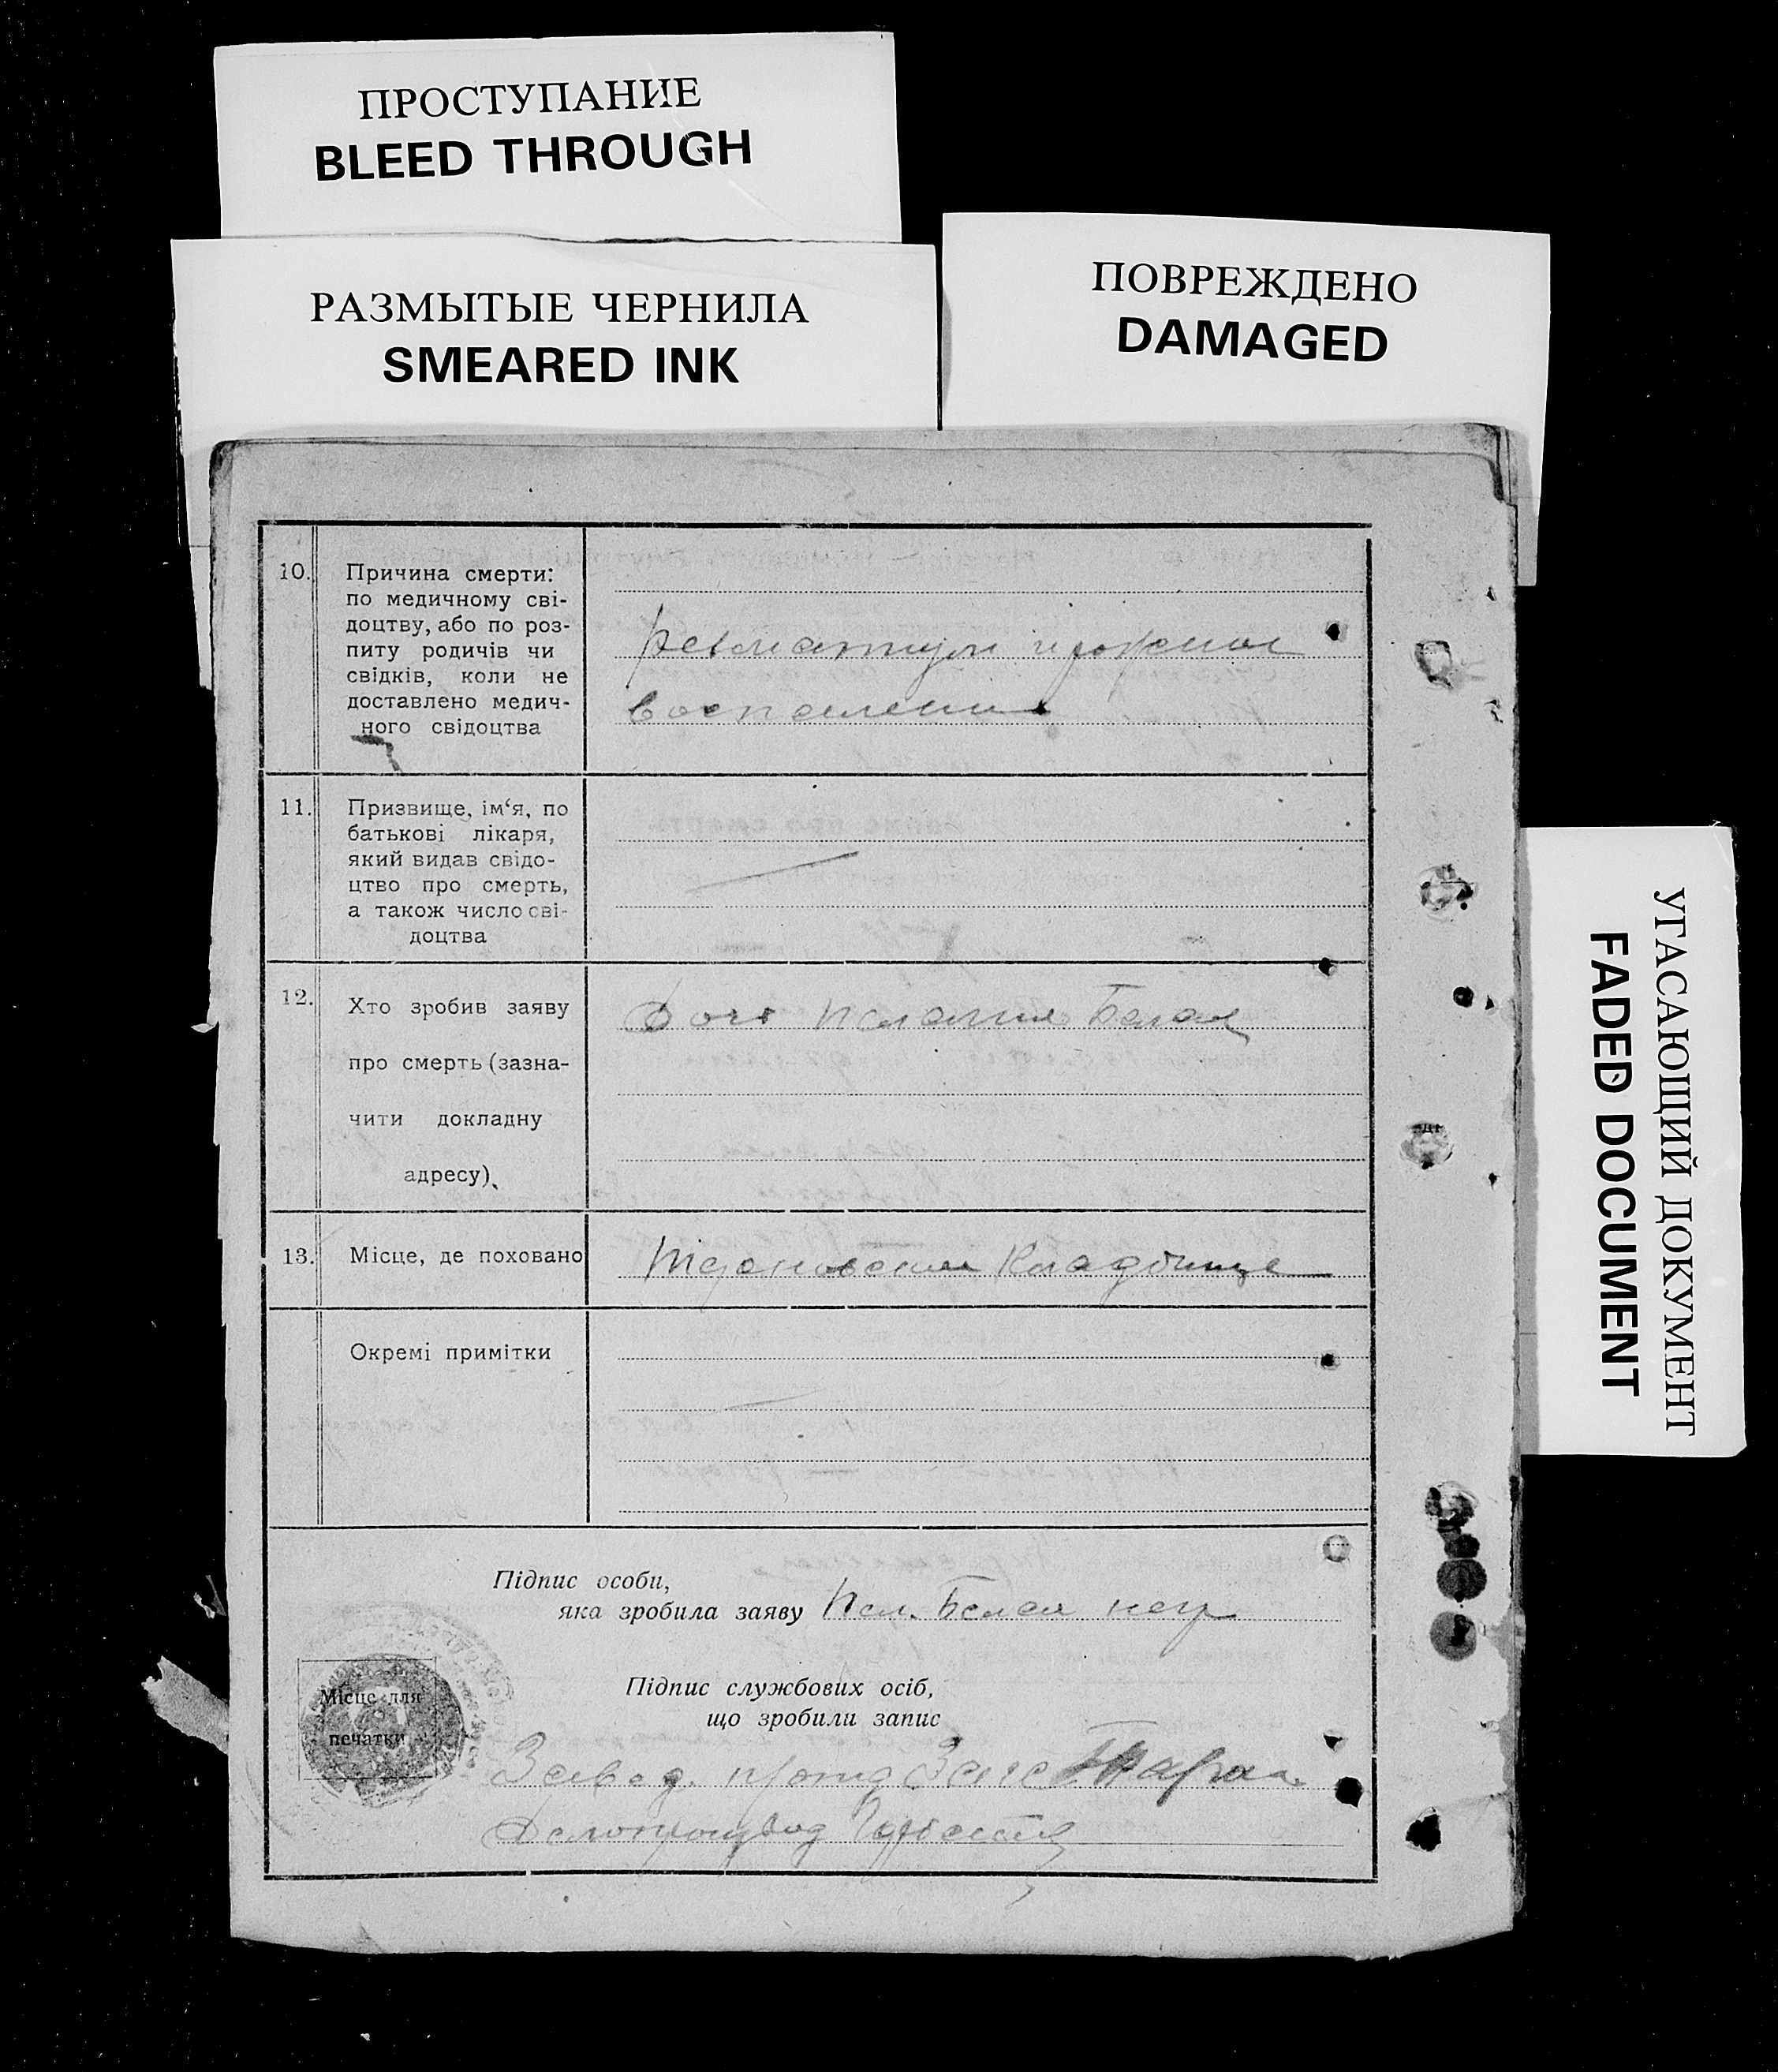 ПРОСТУПАНИЕ
BLEED THROUGH
РАЗМЫТЫЕ ЧЕРНИЛА
SMEARED INK
ПОВРЕЖДЕНО
DAMAGED
10. Причина смерти:
по медичному сві-
доцтву, або по роз-
питу родичів чи
свідків, коли не
доставлено медич-
ного свідоцтва
ревматизм и рожение
воспаление
11. Призвище, ім‘я, по
батькові лікаря,
який видав свідо-
цтво про смерть,
а також число сві-
доцтва
12. Хто зробив заяву
про смерть (зазна-
чити докладну
адресу)
Дочь Пелагия Белая
13. Місце, де поховано
Кладбище
Окремі примітки
Підпис особи,
яка зробила заяву Пел. Белая негр
Місце для
печатки
Підпис службових осіб,
що зробили запис
Завед.
Делопроизвод
УГАСАЮЩИЙ ДОКУМЕНТ
FADED DOCUMENT